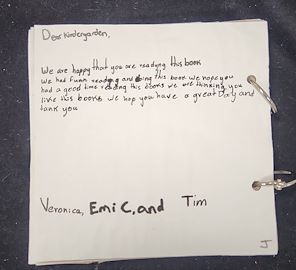 Dear Kindergarden,
We are happy that you are readyng this book
We had funn reading and doing this book we hope you
had a good time reading this books we are thinking you
like this books we hop you have a great Day and
tank you
Veronica, Emi C, and Tim
J